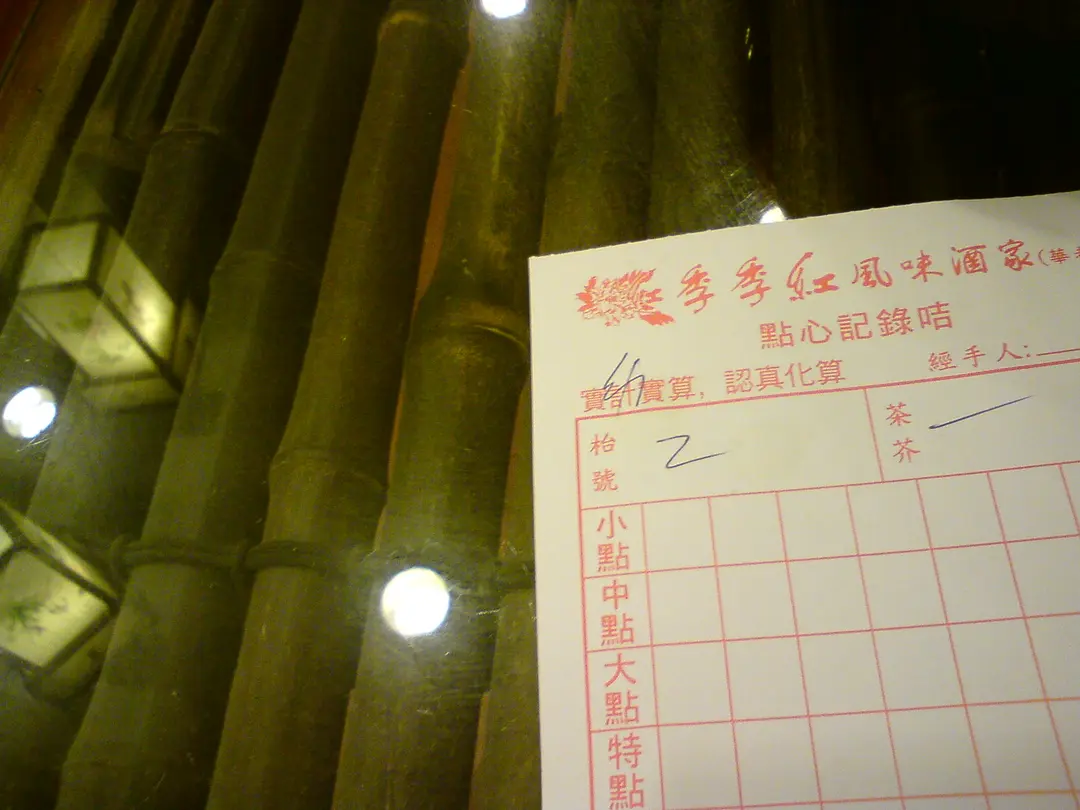 季季紅風味酒家(華
點心記錄咭
實計實算，認真化算
經手人:
枱號 2
茶芥 一
小點
中點
大點
特點